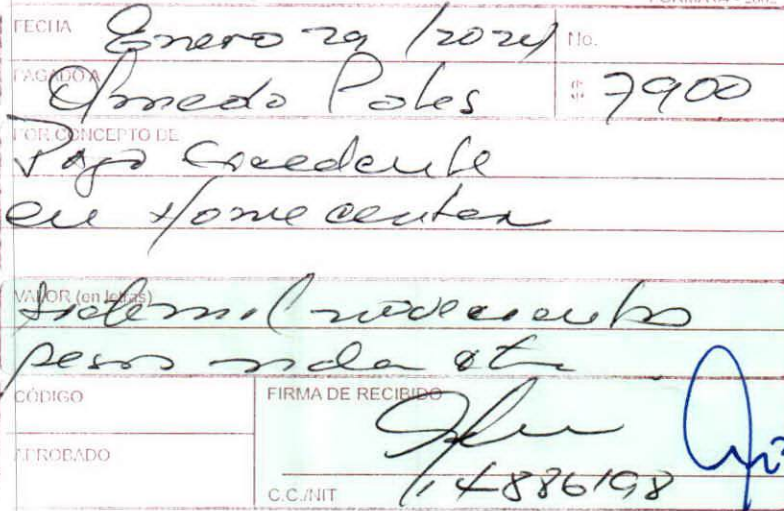 FORMATA - 2002
FECHA Enero 29 /2024 No.
PAGADO A Olmedo Poles $ 7900
POR CONCEPTO DE
Pago Excedente
en Homecenter
VALOR (en letras)
Sietemil novecientos
pesos mda cte
CÓDIGO FIRMA DE RECIBIDO
APROBADO
C.C./NIT 14886198